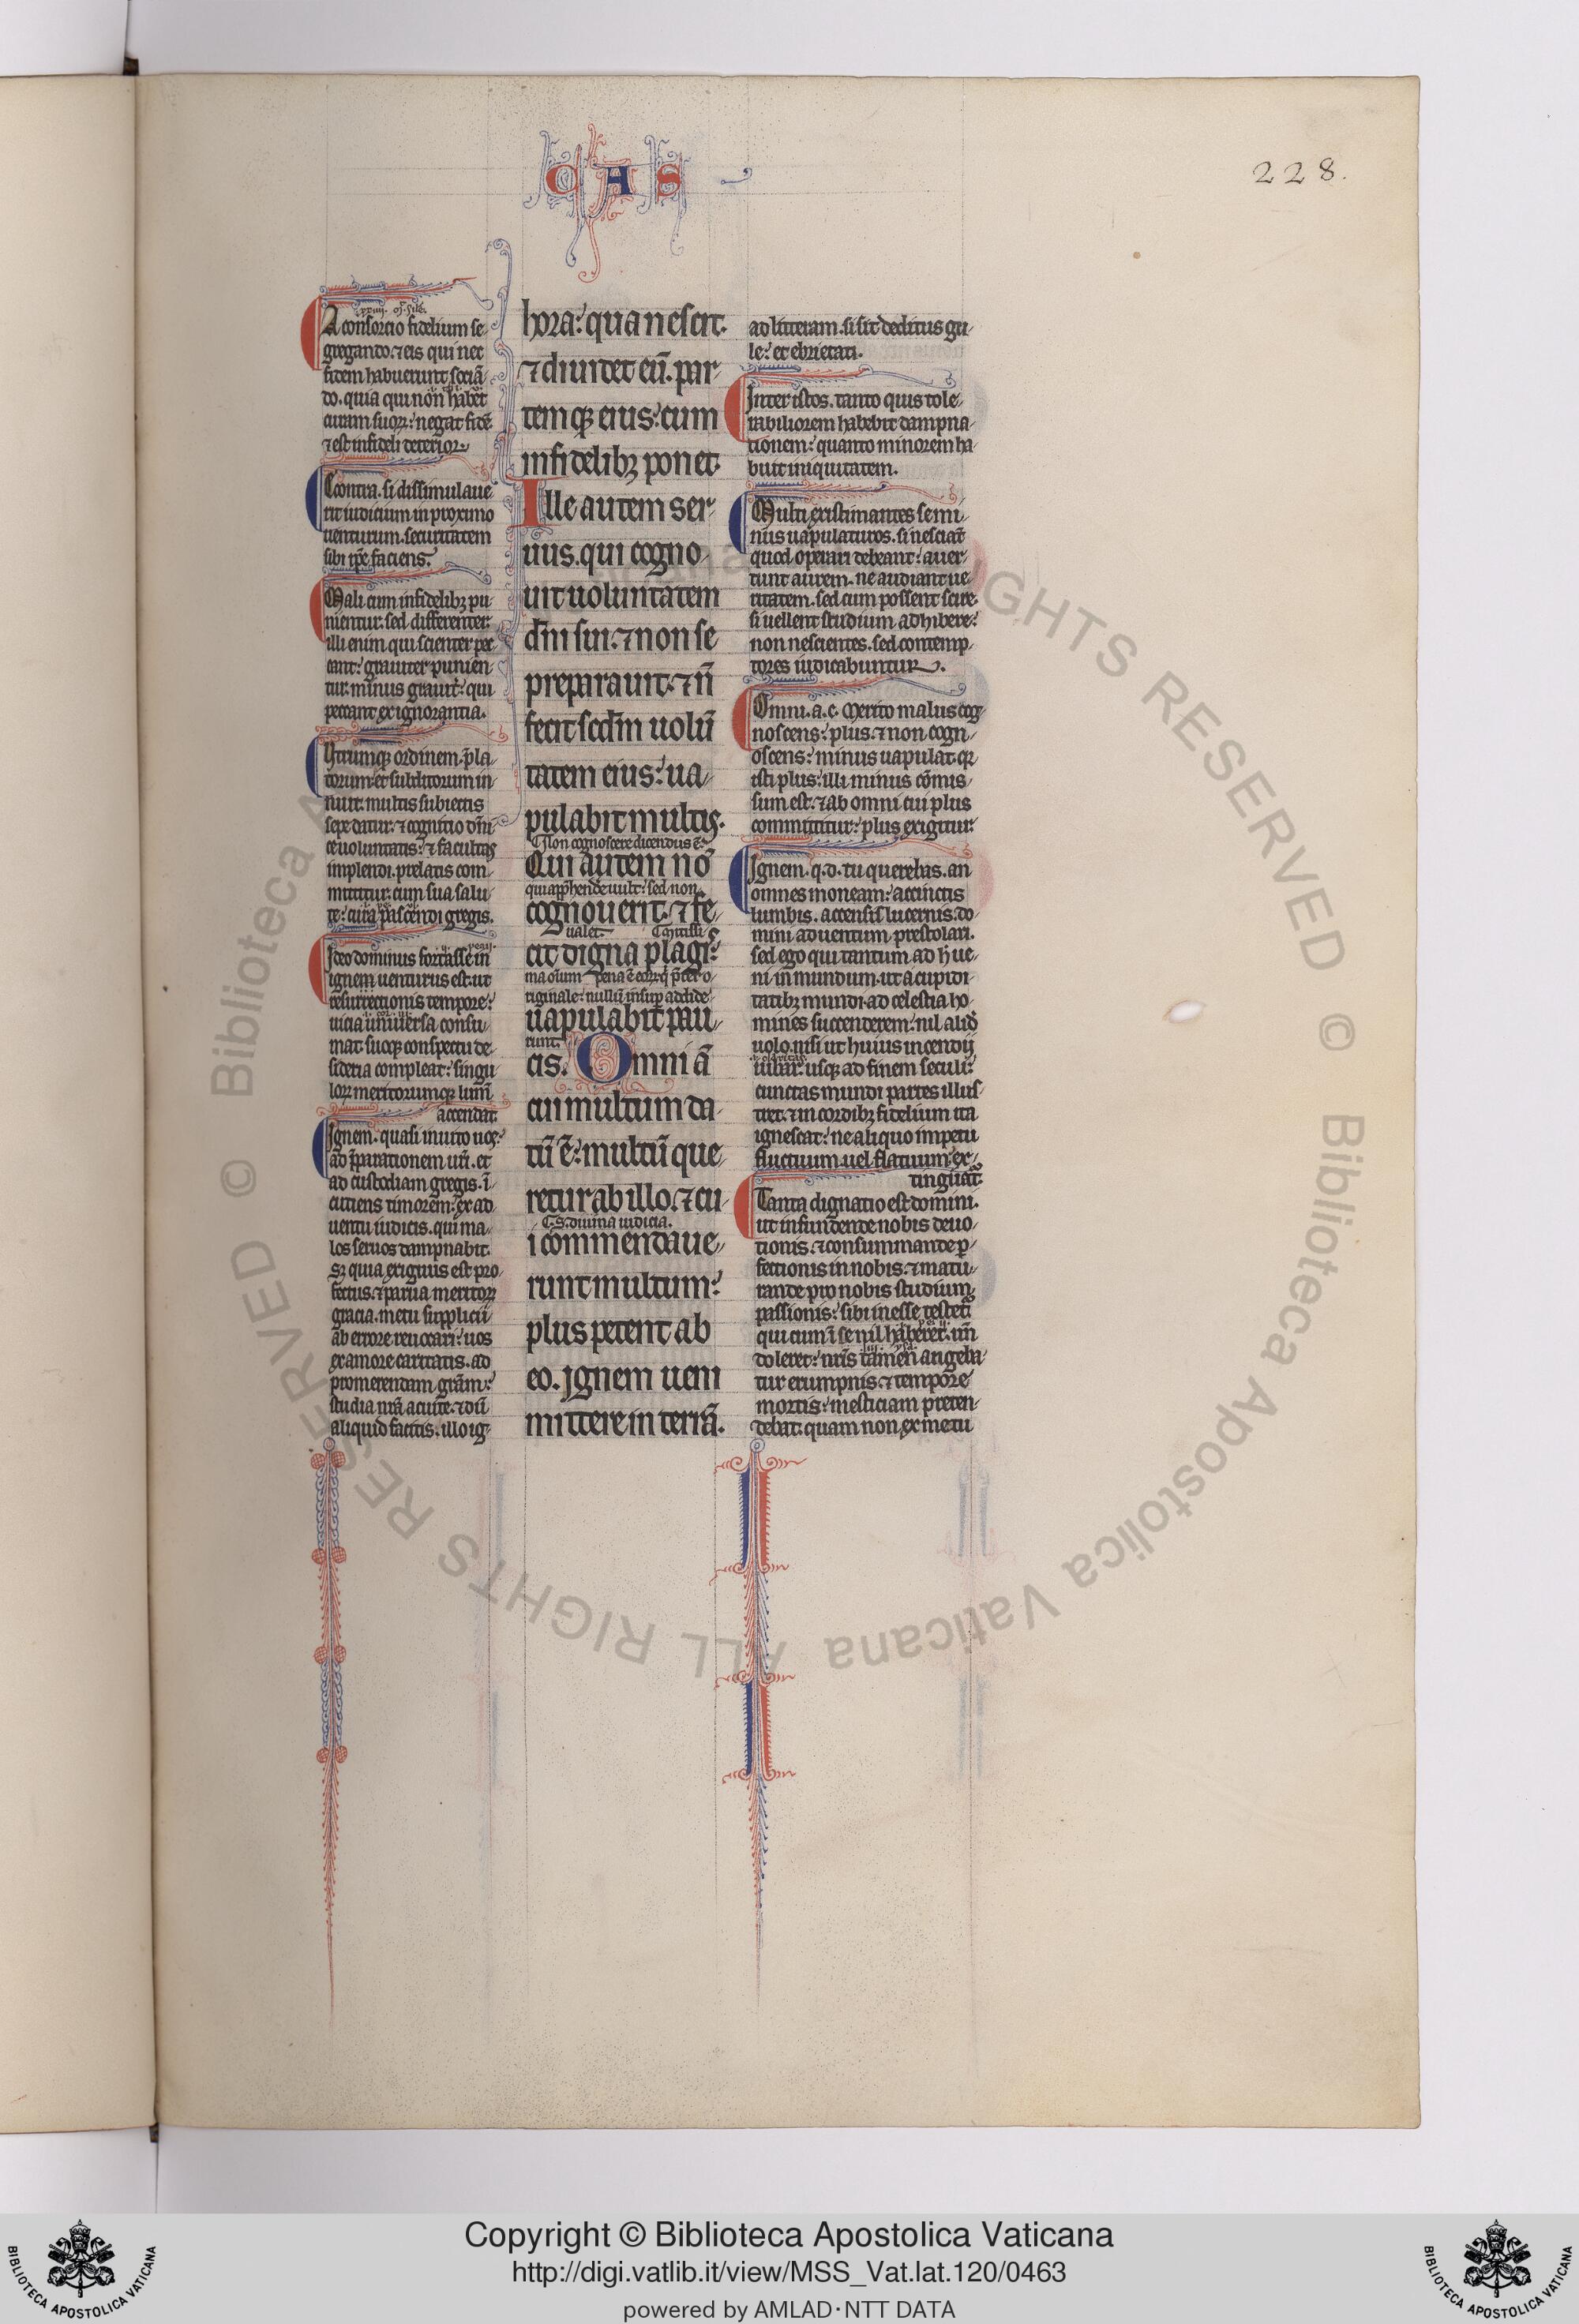 CAS
228.
A consortio fidelium se-
gregando. ⁊ eis qui nec
fidem habuerunt sociã-
do. quia qui non habet
curam suoꝝ: negat fidẽ
⁊ est infideli deterior.
Contra. si dissimulaue-
rit iudicium in proximo
uenturum. securitatem
sibi ip̃e faciens.
Mali cum infidelibꝫ pu-
nientur. sed differenter.
illi enim qui scienter pec-
cant: grauiter punien-
tur. minus grauiṫ: qui
peccant ex ignorantia.
Utrumqꝫ ordinem. p̃la-
torum ⁊ subditorum in-
nuit. multis subiectis
sepe datur. ⁊ cognitio dñi-
ce uoluntatis. ⁊ facultas
implendi. prelatis com-
mittitur. cum sua salu-
te: cura pascendi gregis.
Ideo dominus fortasse in
ignem uenturus est. ut
resurrectionis tempore:
uicia uniuersa consu-
mat. suoqꝫ conspectu de-
sideria compleat: singu-
loꝝ meritorumqꝫ lum̃
accendat.
Ignem. quasi inuito uos:
ad p̃parationem uñi. et
ad custodiam gregis. ĩ-
cutiens timorem: ex ad-
uentu iudicis. qui ma-
los seruos dampnabit.
Sꝫ quia exiguus est pro-
fectus. ⁊ parua meritoꝝ
gracia. metu supplicii
ab errore reuocari: uos
ex amore caritatis. ad
promerendam grãm:
studia nrã acuite. ⁊ dũ
aliquid facitis. illo ig-
hora: qua nescit.
⁊ diuidet eũ. par-
temqꝫ eius: cum
infidelibꝫ ponet.
Ille autem ser-
uus. qui cogno-
uit uoluntatem
dñi sui. ⁊ non se
preparauit. ⁊ ñ
fecit scdm̃ uolũ-
tatem eius: ua-
pulabit multis.
Non cognoscere dicendus ẽ:
Qui autem nõ
qui app̃hende uult: sed non
cognouerit. ⁊ fe-
ualet. Mitissi-
cit digna plagis:
ma oĩum pena ẽ eoꝝ q̃ p̃ter o-
riginale: nullũ insup̃ addide-
uapulabit pau-
runt.
cis. Omni ã
cui multum da-
tũ ẽ: multũ que-
retur ab illo. ⁊ cu-
.S. diuina iudicia.
i commendaue-
runt multum:
plus petent ab
eo. Ignem ueni
mittere in terrã.
ad litteram. si sit deditus gu-
le: et ebrietati.
Inter istos. tanto quis tole-
rabiliorem habebit dampna-
tionem: quanto minorem ha-
buit iniquitatem.
Multi existimantes se mi-
nus uapulaturos. si nesciãt
quod operari debeant: auer-
tunt aurem. ne audiant ue-
ritatem. sed cum possent scire.
si uellent studium adhibere:
non nescientes. sed contemp-
tores iudicabuntur.
Omni. a. c. Merito malus cog-
noscens: plus. ⁊ non cogn-
oscens: minus uapulat. qꝛ
isti plus: illi minus cõmis-
sum est. ⁊ ab omni cui plus
committitur: plus exigitur.
Ignem. q. d. tu querebas. an
omnes moneam: accinctis
lumbis. accensis lucernis. do-
mini aduentum prestolari.
sed ego qui tantum ad h̾ ue-
ni in mundum. ut a cupidi-
tatibꝫ mundi. ad celestia ho-
mines succenderem: nil aliđ
uolo. nisi ut huius incendij
iubar. usqꝫ ad finem seculi:
cunctas mundi partes illus-
tret. ⁊ in cordibꝫ fidelium ita
ignescat: ne aliquo impetu
fluctuum. uel flatuum. ex-
tinguat̃.
Tanta dignatio est domini.
ut infundende nobis deuo-
tionis. ⁊ consummande p̲-
fectionis in nobis. ⁊ matu-
rande pro nobis studium
passionis: sibi inesse testet̃
qui cum ĩ se nil haberet. uñ
doleret: nrĩs tamen angeba-
tur erumpnis. ⁊ tempore
mortis: mesticiam preten-
debat. quam non ex metu
Copyright © Biblioteca Apostolica Vaticana
http://digi.vatlib.it/view/MSS_Vat.lat.120/0463
powered by AMLAD·NTT DATA
BIBLIOTECA APOSTOLICA VATICANA
BIBLIOTECA APOSTOLICA VATICANA